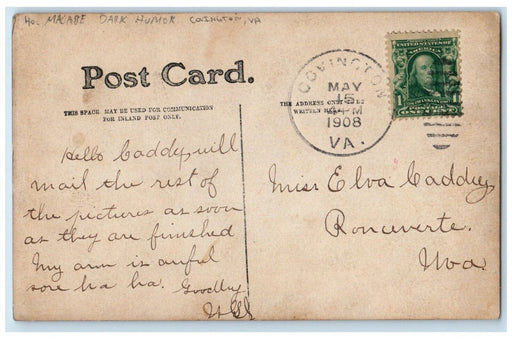 Ho. MACABE DARK HUMOR COVINGTON, VA
Post Card.
THIS SPACE MAY BE USED FOR COMMUNICATION
FOR INLAND POST ONLY.
THE ADDRESS ONLY
WRITTEN
COVINGTON
MAY
15
M
1908
VA.
Hello Caddy, will
mail the rest of
the pictures as soon
as they are finished
My arm is awful
sore ha ha. Goodby
Miss Elva Caddy,
Ronceverte.
Wva